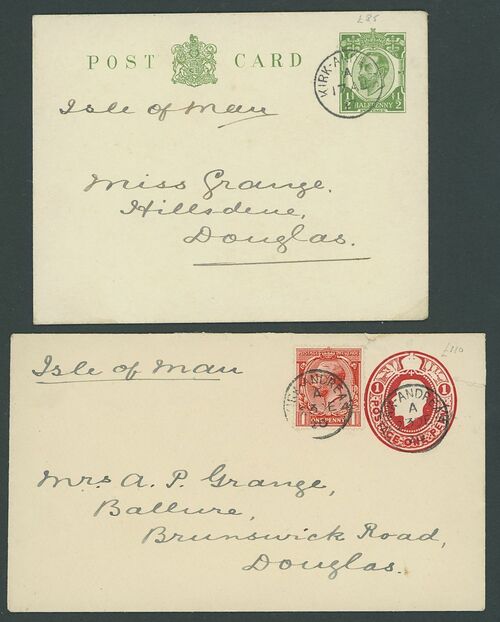 £85
POST CARD
KIRK-A
A
17
1/2 HALFPENNY 1/2
Isle of Man
Miss Grange.
Hillsdene,
Douglas.
£110
Isle of Man
1 ONE PENNY 1
KIRK-ANDREAS
A
25
1 1
POSTAGE·ONE·PENNY
ANDREAS
A
Mrs A. P. Grange,
Ballure,
Brunswick Road,
Douglas.